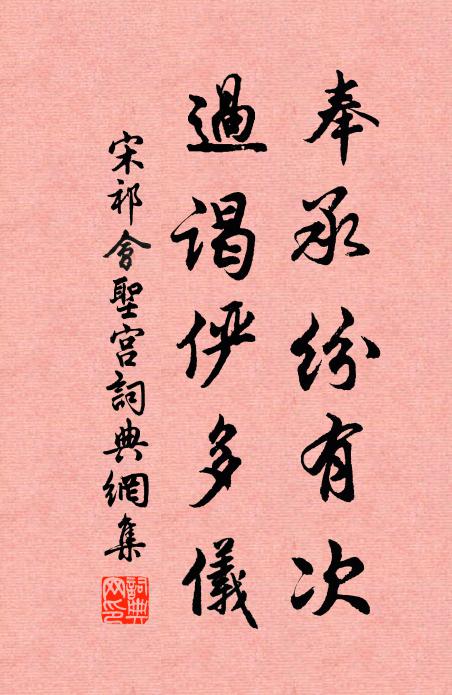 奉承纷有次
過謁俨多儀
宋祁會聖宮詞典網集
詞典网印